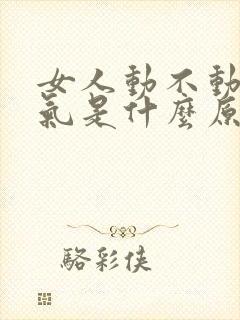 女人動不動
氣是什麼原
駱彩侠